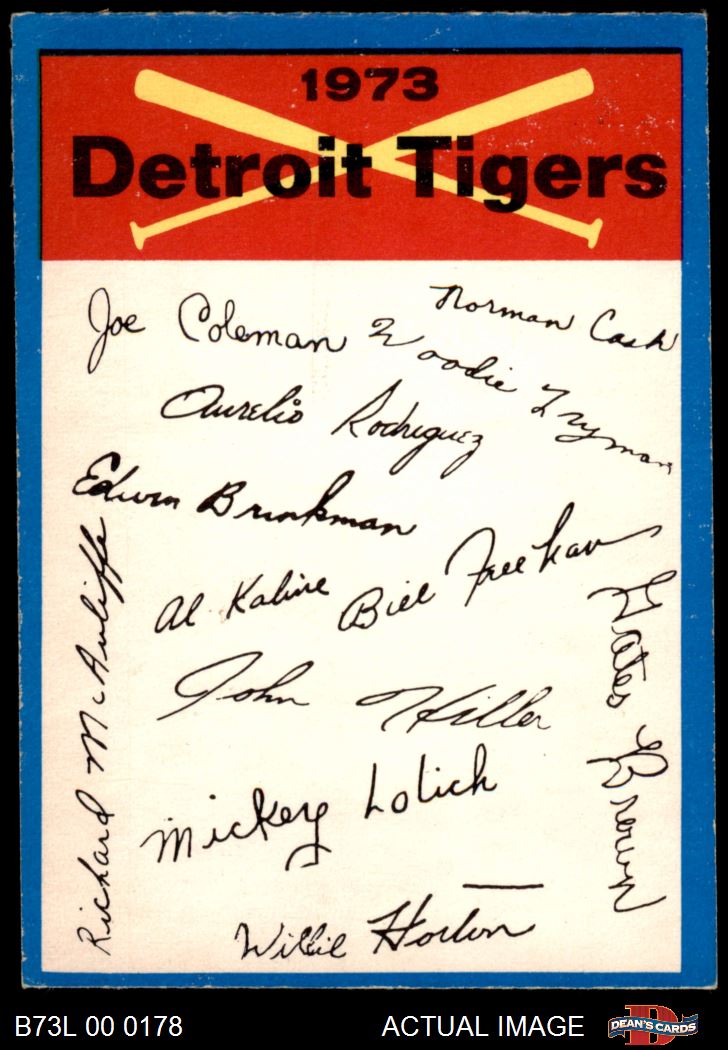 1973
Detroit Tigers
Norman Cash
Joe Coleman
Woodie Fryman
Aurelio Rodriguez
Edwin Brinkman
Bill Freehan
Al Kaline
Gates Brown
Richard McAuliffe
John Hiller
Mickey Lolich
Willie Horton
B73L 00 0178 ACTUAL IMAGE DEAN'S CARDS